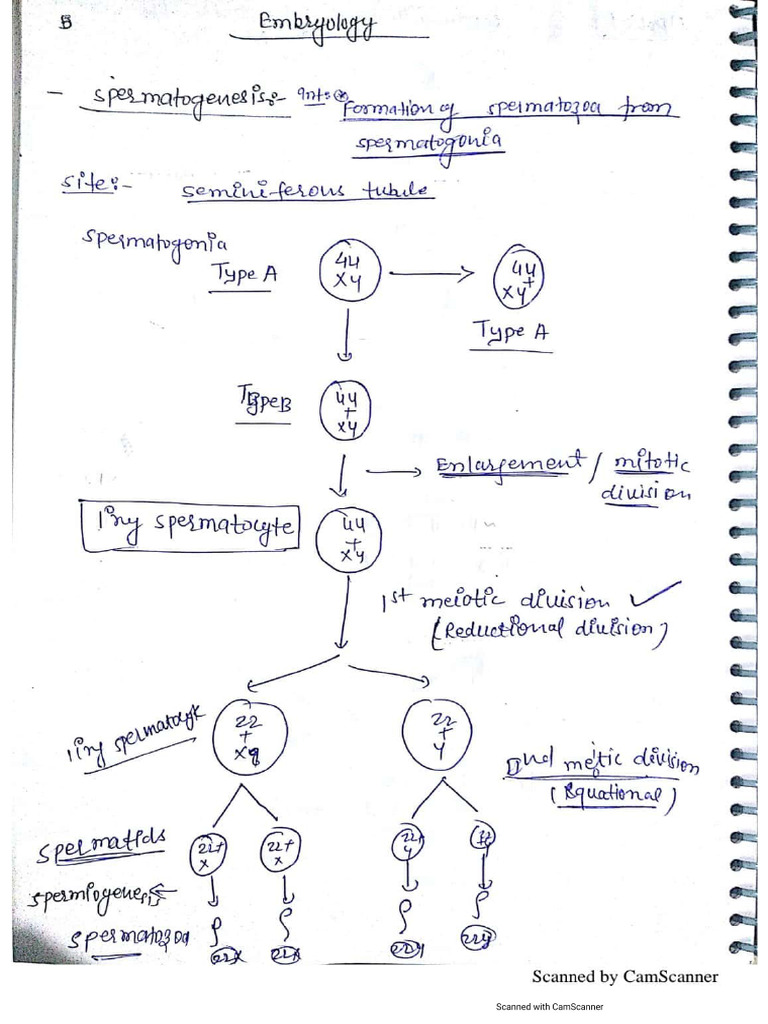 Embryology
- Spermatogenesis:- Formation of spermatozoa from
spermatogonia
Site:- seminiferous tubule
Spermatogonia
Type A
44
xy
44
+
xy
Type A
Type B
44
+
xy
Enlargement / mitotic
division
Iry spermatocyte
44
+
xy
1st meiotic division ✓
(Reductional division)
IIry spermatocyte
22
+
x
22
+
y
IInd meiotic division
(Equational)
Spermatids
22+
x
22+
x
22+
y
Spermiogenesis
Spermatozoa
22x
22x
22y
22y
Scanned by CamScanner
Scanned with CamScanner